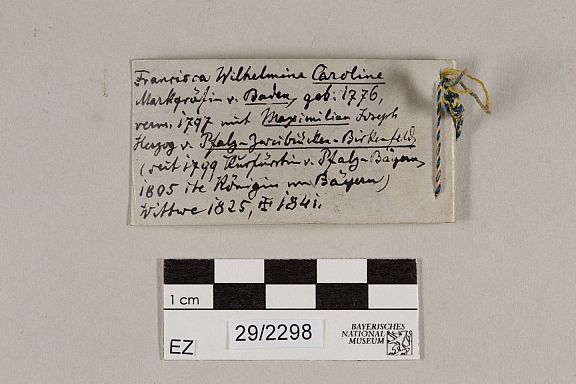 Francisca Wilhelmine Caroline
Markgräfin v. Baden, geb. 1776,
verm. 1797 mit Maximilian Joseph
Herzog v. Pfalz-Zweibrücken-Birkenfeld,
(seit 1799 Kurfürstin v. Pfalz-Bayern,
1805 1te Königin von Bayern)
Wittwe 1825, 1841.
1 cm
29/2298
EZ
BAYERISCHES
NATIONAL
MUSEUM